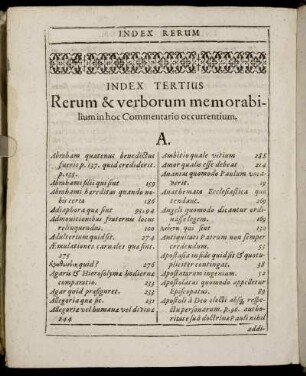 INDEX RERUM
INDEX TERTIUS
Rerum & verborum memorabi-
lium in hoc Commentario occurrentium.
A.
Abraham quatenus benedictus
fuerit. p. 137. quid crediderit.
p. 135.
Abrahami filii qui sint 159
Abrahami hereditas quando no-
bis certa 186
Adiaphora quæ sint 95.94
Admonitionibus fraternis locus
relinquendus. 100
Adulterium quid sit. 274
Æmulationes carnales quæ sint.
275
quid? 276
Agaris & Hierosolymæ hodiernæ
comparatio 233
Agar quid præfiguret. 233
Allegoria quæ sit. 231
Allegoria vel humana vel divina
244
Ambitio quale vitium 288
Amor qualis esse debeat 214
Ananias quomodo Paulum voca-
verit. 19
Anathemata Ecclesiastica qua
tendant. 269
Angeli quomodo dicantur ordi-
nasse legem. 169
qui sint 130
Antiquitati Patrum non semper
credendum. 55
Apostasia in fide quid sit & quo
pliciter contingat. 38
Apostatarum ingenium. 52
Apostolatus quomodo appelletur
Episcopatus. 89
Apostoli à Deo electi absq; respe-
ctu personarum. p. 96. autho-
ritate suâ doctrinæ Pauli nihil
addi-